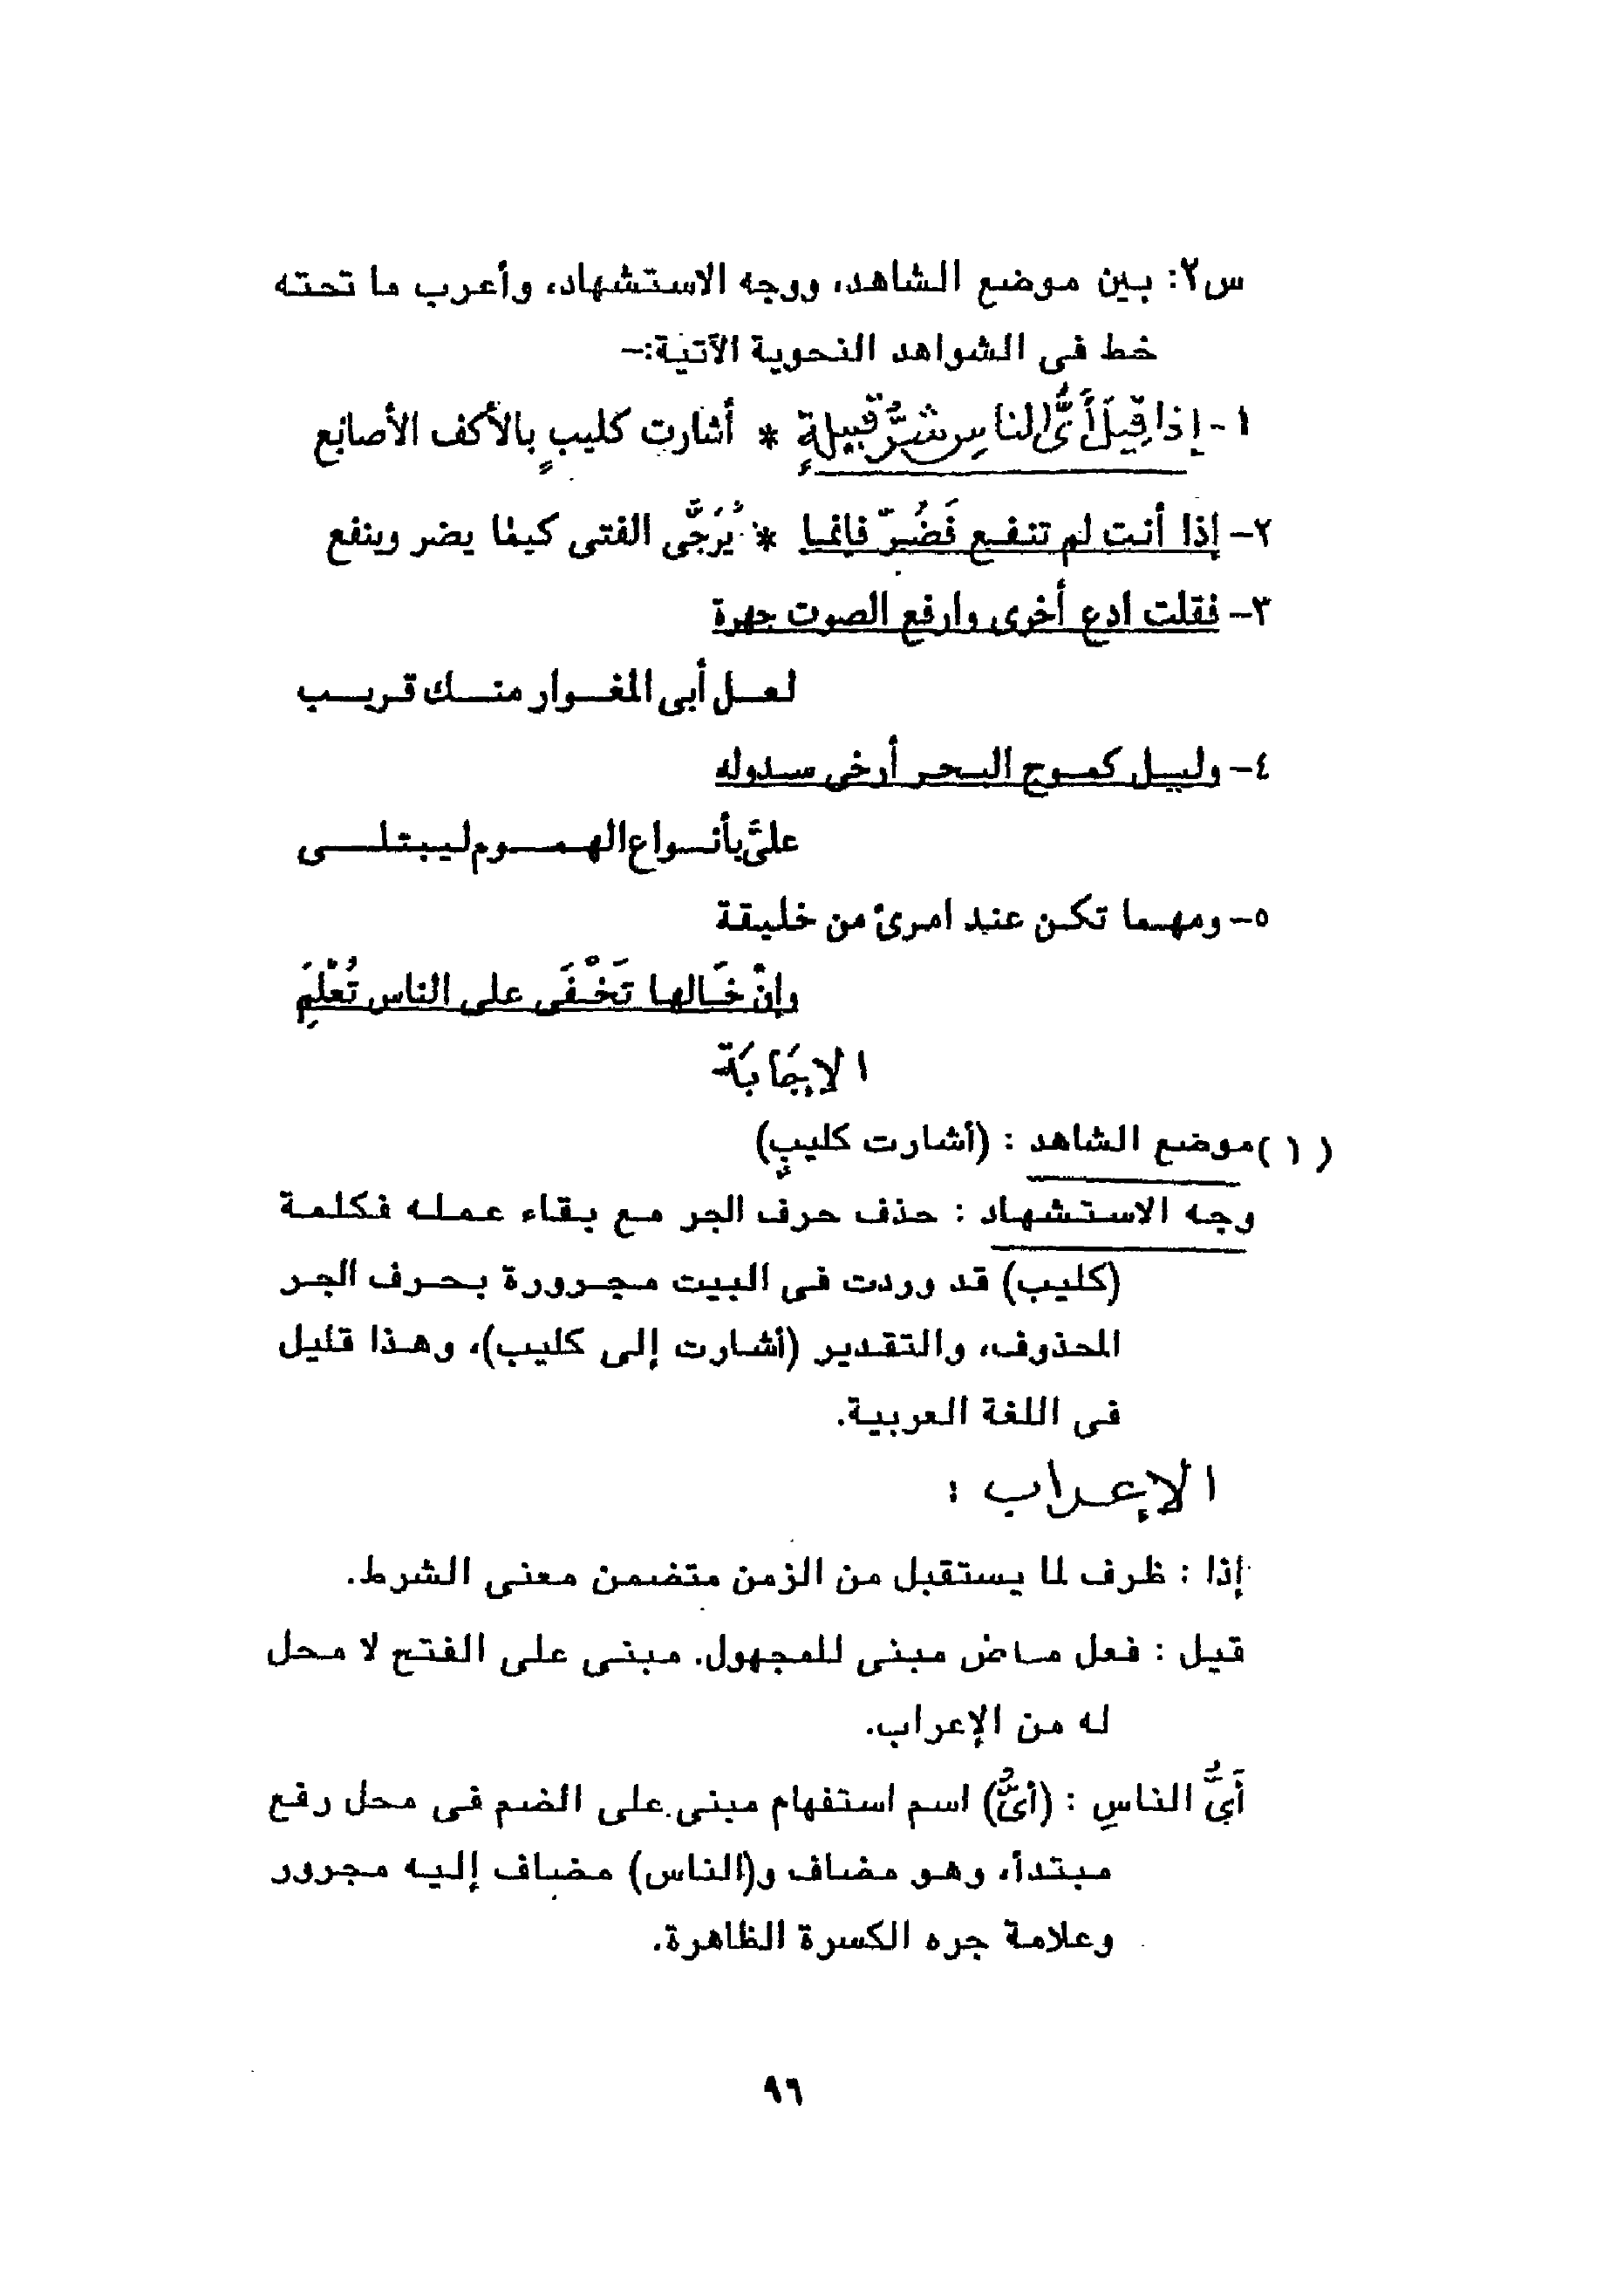 س٢: بين موضع الشاهد، ووجه الاستشهاد، وأعرب ما تحته
خط فى الشواهد النحوية الآتية:-
١- إذا قِيلَ أَىُّ الناسِ شَرُّ قَبِيلةٍ * أشارت كليبٍ بالأكف الأصابع
٢- إذا أنت لم تنفع فَضُرّ فإنما * يُرَجَّى الفتى كيما يضر وينفع
٣- فقلت ادع أخرى وارفع الصوت جهرة
لعل أبى المغوار منك قريب
٤- وليل كموج البحر أرخى سدوله
علىَّ بأنواع الهموم ليبتلى
٥- ومهما تكن عند امرئ من خليقة
وإنْ خَالها تَخْفَى على الناس تُعْلَمِ
الإجَابَة
(١) موضع الشاهد : (أشارت كليبٍ)
وجه الاستشهاد : حذف حرف الجر مع بقاء عمله فكلمة
(كليب) قد وردت فى البيت مجرورة بحرف الجر
المحذوف، والتقدير (أشارت إلى كليب)، وهذا قليل
فى اللغة العربية.
الإعراب :
إذا : ظرف لما يستقبل من الزمن متضمن معنى الشرط.
قيل : فعل ماض مبنى للمجهول. مبنى على الفتح لا محل
له من الإعراب.
أَىُّ الناسِ : (أىُّ) اسم استفهام مبنى على الضم فى محل رفع
مبتدأ، وهو مضاف و(الناس) مضاف إليه مجرور
وعلامة جره الكسرة الظاهرة.
٩٦